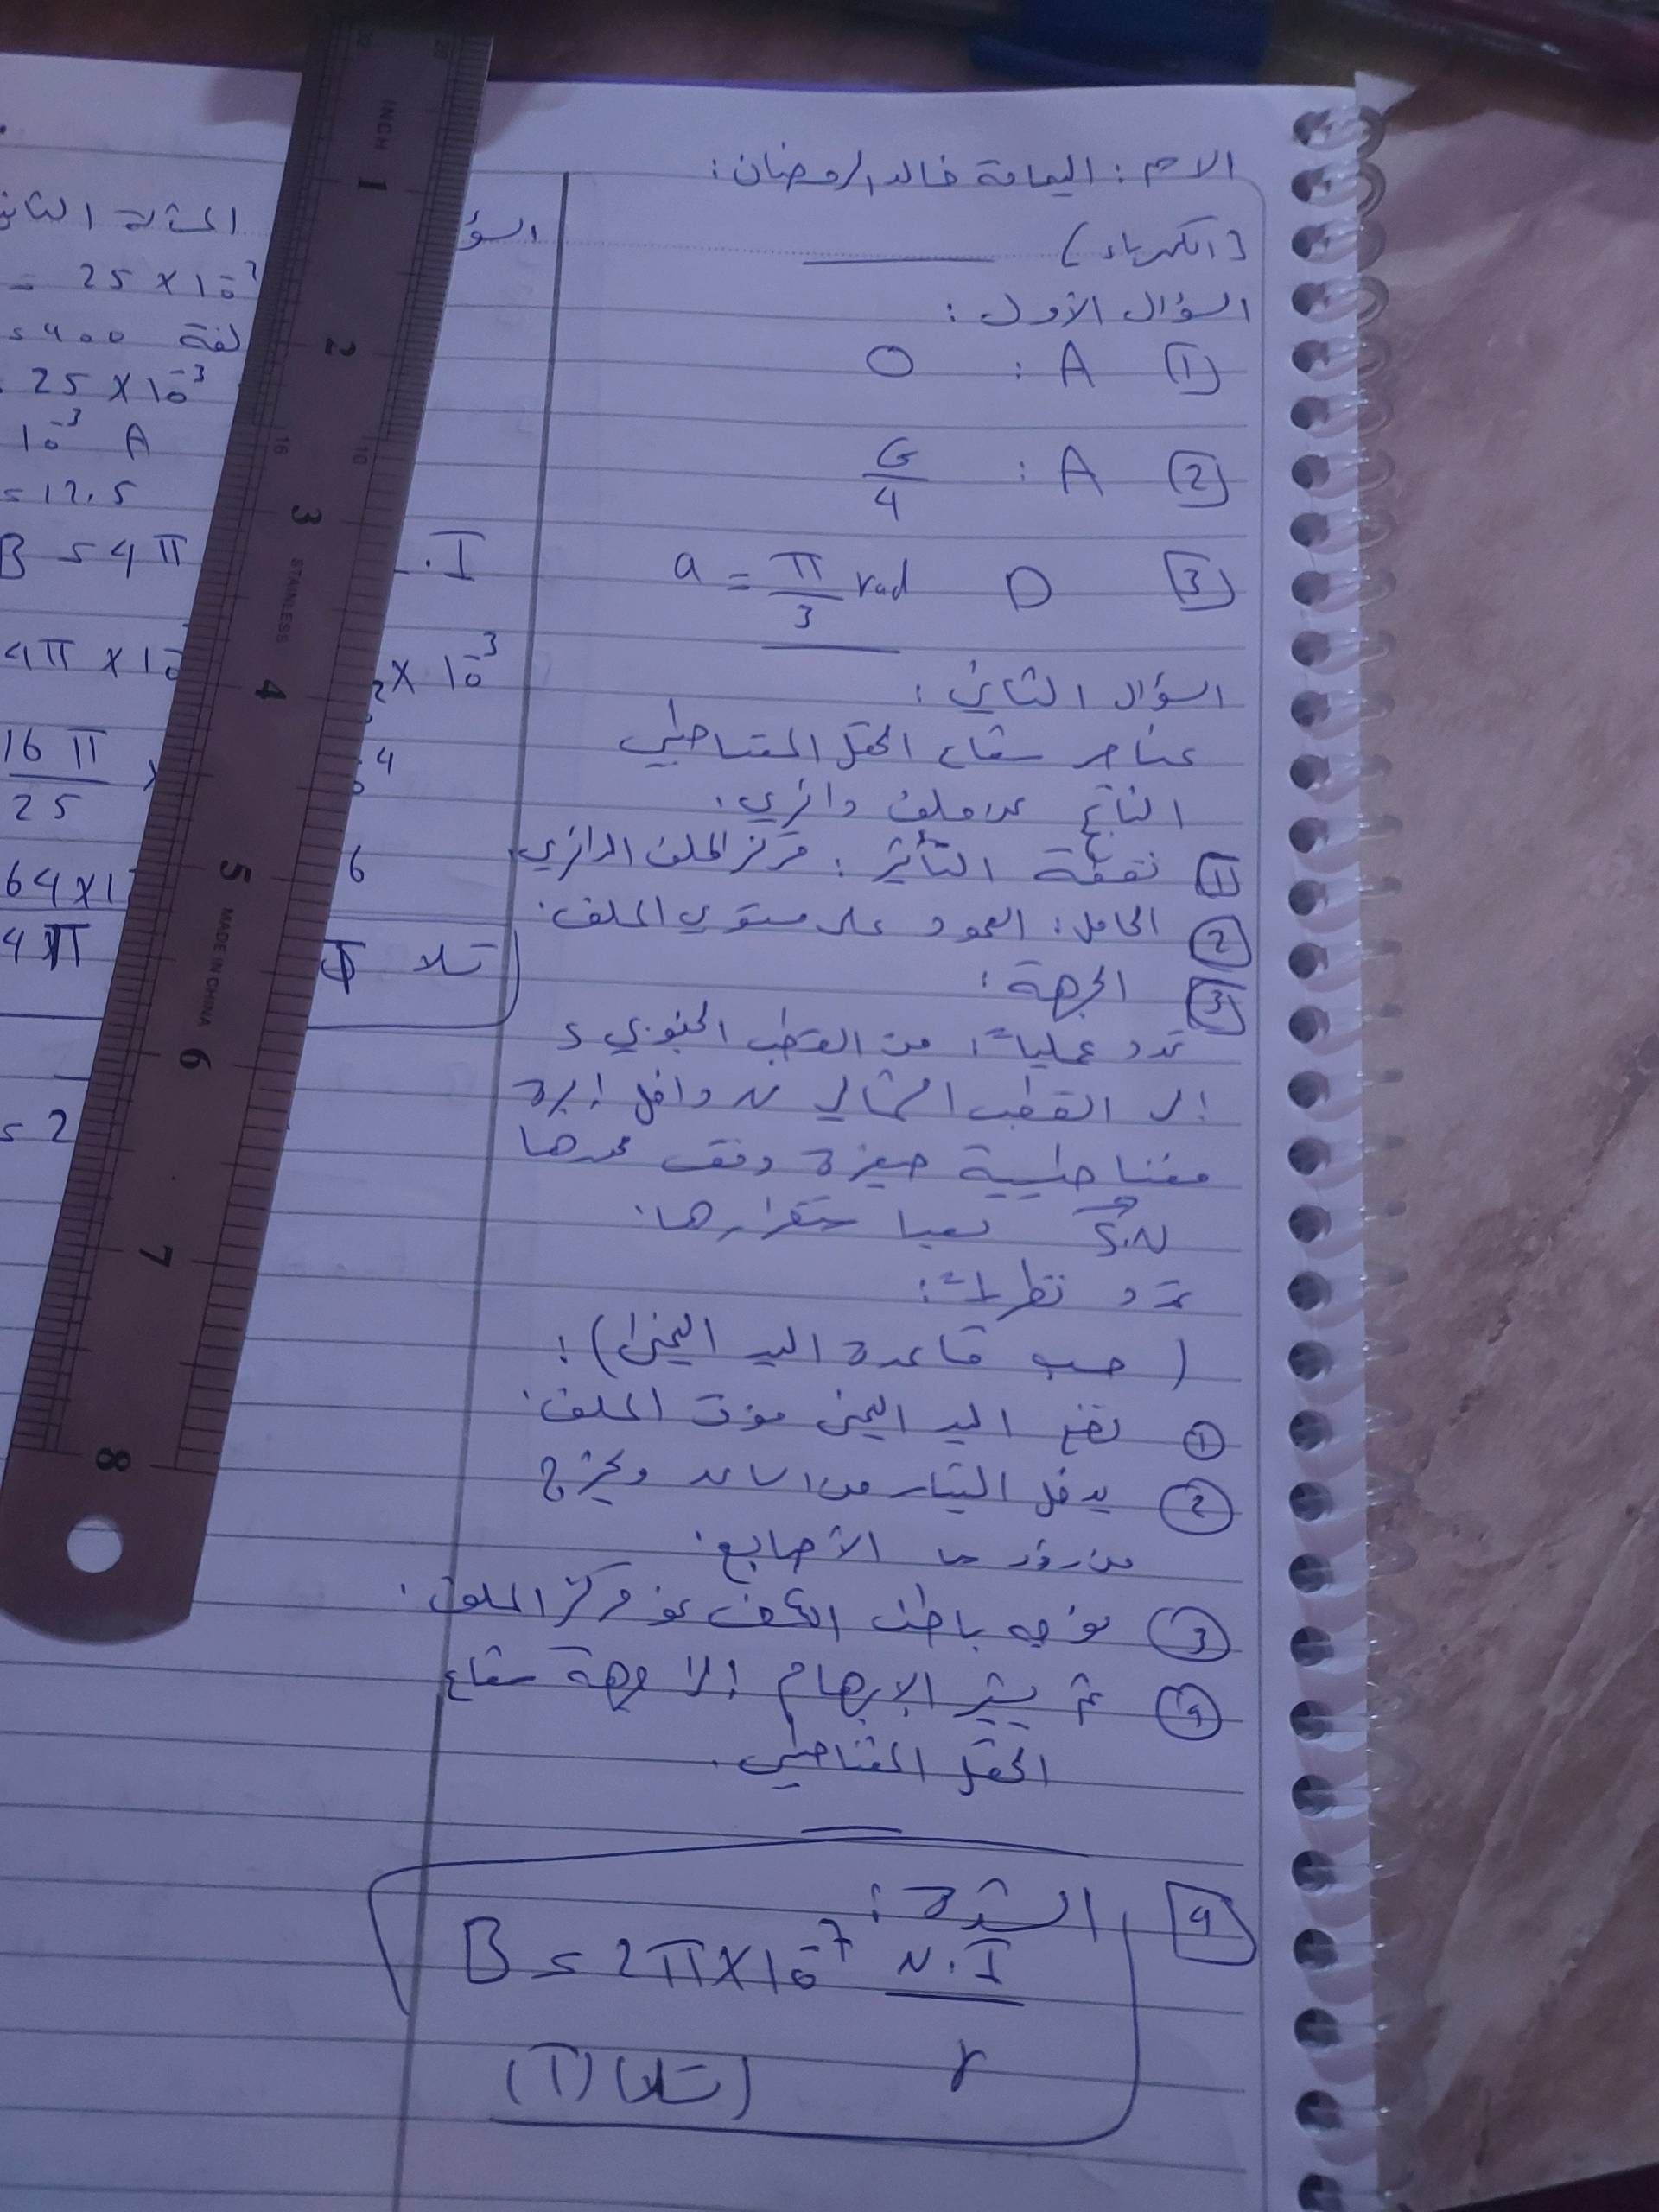 الاسم : اليمامة خالد الرمضان :
(الكهرباء)
السؤال الأول :
1 A : 0
2 A : G/4
3 D a = π/3 rad
السؤال الثاني :
عناصر شعاع الحقل المغناطيسي
الناتج عن ملف دائري .
1 نقطة التأثير : مركز الملف الدائري
2 الحامل : العمود على مستوي الملف .
3 الجهة :
تحدد عملياً : من القطب الجنوبي S
إلى القطب الشمالي N داخل إبرة
مغناطيسية صغيرة وفق محورها
S.N بعد استقرارها .
تحدد نظرياً :
(حسب قاعدة اليد اليمنى) :
1 نضع اليد اليمنى فوق الملف .
2 يدخل التيار من الساعد ويخرج
من رؤوس الأصابع .
3 نوجه باطن الكف نحو مركز الملف .
4 ثم يشير الإبهام إلى جهة شعاع
الحقل المغناطيسي .
4 الشدة :
B = 2π×10⁻⁷ N.I
r
(تسلا) (T)
السؤ
.I
×10⁻³
4
6
تسلا T
المسألة الثاني
= 25×10⁻²
= 400 لفة
25×10⁻³
10⁻³ A
= 12.5
B = 4π
4π×10
16π
25
64×1
4π
= 2
INCH
1
2
3
4
5
6
7
8
16
10
STAINLESS
MADE IN CHINA